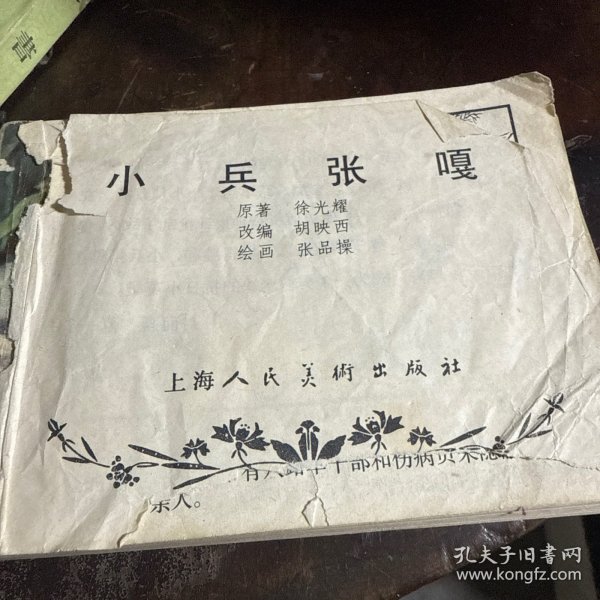 書
小兵张嘎
原著 徐光耀
改编 胡映西
绘画 张品操
上海人民美術出版社
亲人。
孔夫子旧书网
www.kongfz.com